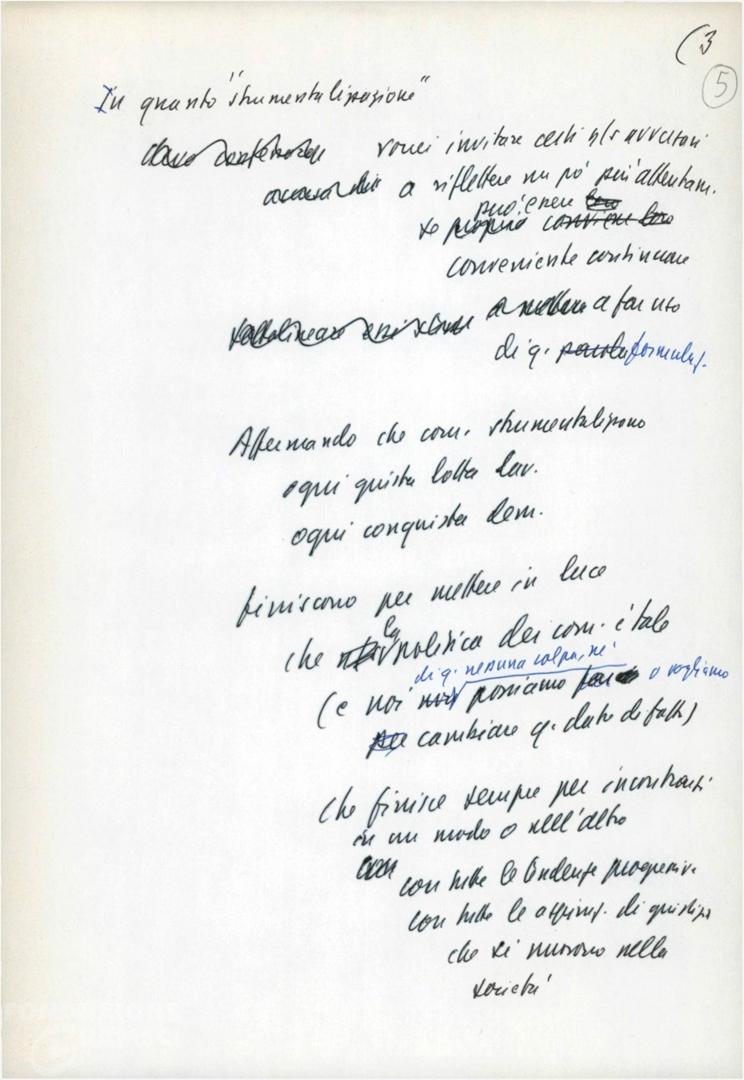 (3
5
In quanto "strumentalizzazione"
vorrei invitare certi ns/ avversari
a riflettere un po' più attentam.
può essere
se proprio conviene loro
conveniente continuare
a far uso
di q. parola formulaz.
Affermando che com. strumentalizzano
ogni giusta lotta lav.
ogni conquista dem.
finiscono per mettere in luce
che la politica dei com. è tale
di q. nessuna colpa, né
(e noi non possiamo o vogliamo
per cambiare q. dato di fatto)
che finisce sempre per incontrarsi
in un modo o nell'altro
con
con tutte le tendenze progressive
con tutte le aspiraz. di giustizia
che si muovono nella
società